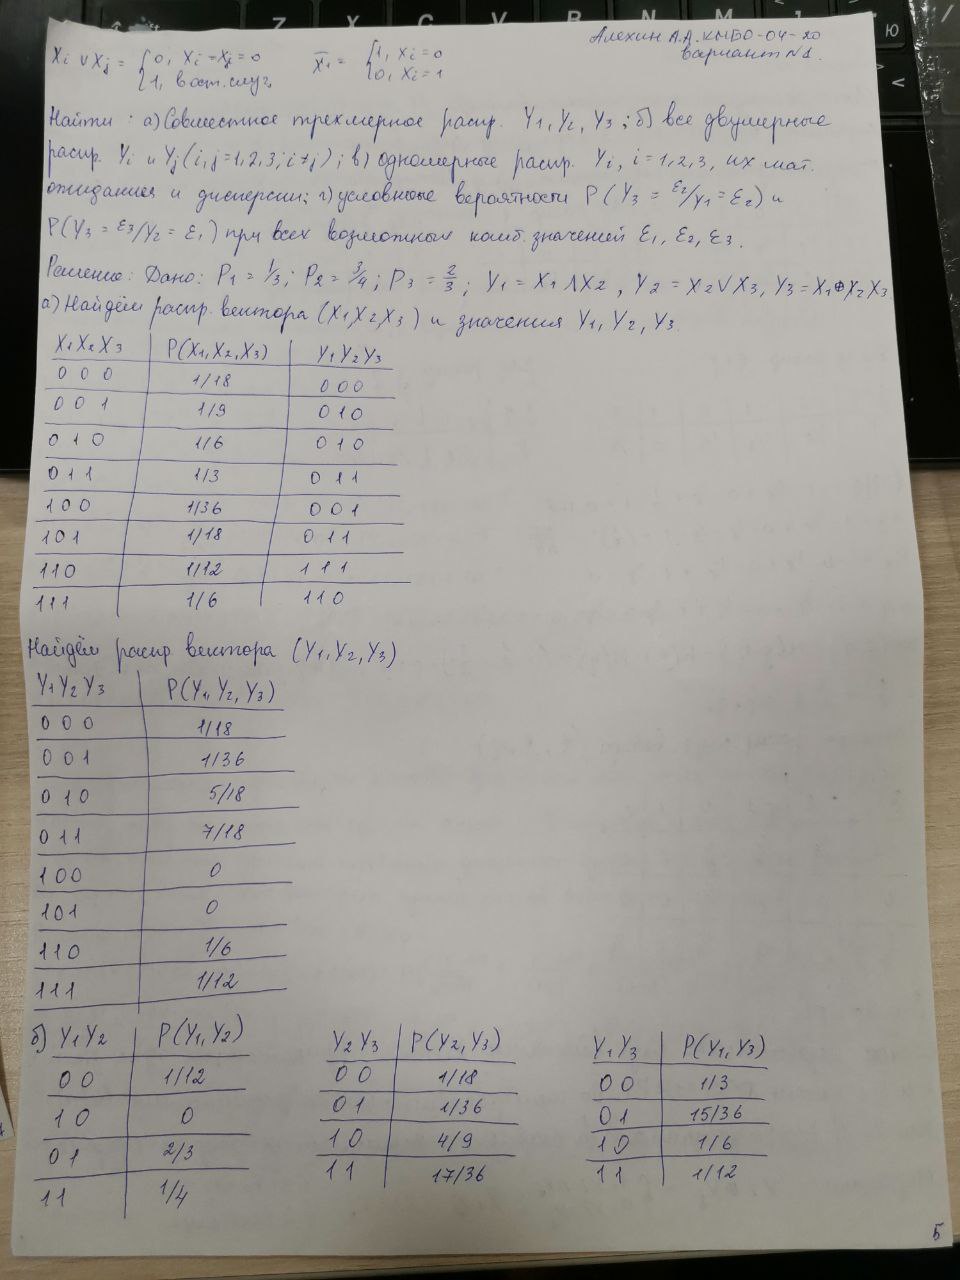 Алехин А.А. КМБО-04-20
Вариант №1.
Xi ∨ Xj = {0, Xi = Xj = 0
{1, в ост. случ.
X̄i = {1, Xi = 0
{0, Xi = 1
Найти: а) Совместное трехмерное распр. Y1, Y2, Y3; б) все двумерные
распр. Yi и Yj (i,j=1,2,3; i≠j); в) одномерные распр. Yi, i=1,2,3, их мат.
ожидания и дисперсии; г) условные вероятности P(Y3 = ε3/Y1 = ε2) и
P(Y3 = ε3/Y2 = ε1) при всех возможных комб. значений ε1, ε2, ε3.
Решение: Дано: P1 = 1/3; P2 = 3/4; P3 = 2/3; Y1 = X1 ∧ X2, Y2 = X2 ∨ X3, Y3 = X1 ⊕ X2 X3
а) Найдём распр. вектора (X1 X2 X3) и значения Y1, Y2, Y3.
X1 X2 X3 P(X1, X2, X3) Y1 Y2 Y3
0 0 0 1/18 0 0 0
0 0 1 1/9 0 1 0
0 1 0 1/6 0 1 0
0 1 1 1/3 0 1 1
1 0 0 1/36 0 0 1
1 0 1 1/18 0 1 1
1 1 0 1/12 1 1 1
1 1 1 1/6 1 1 0
Найдём распр вектора (Y1, Y2, Y3)
Y1 Y2 Y3 P(Y1, Y2, Y3)
0 0 0 1/18
0 0 1 1/36
0 1 0 5/18
0 1 1 7/18
1 0 0 0
1 0 1 0
1 1 0 1/6
1 1 1 1/12
б) Y1 Y2 P(Y1, Y2)
0 0 1/12
1 0 0
0 1 2/3
1 1 1/4
Y2 Y3 P(Y2, Y3)
0 0 1/18
0 1 1/36
1 0 4/9
1 1 17/36
Y1 Y3 P(Y1, Y3)
0 0 1/3
0 1 15/36
1 0 1/6
1 1 1/12
Б